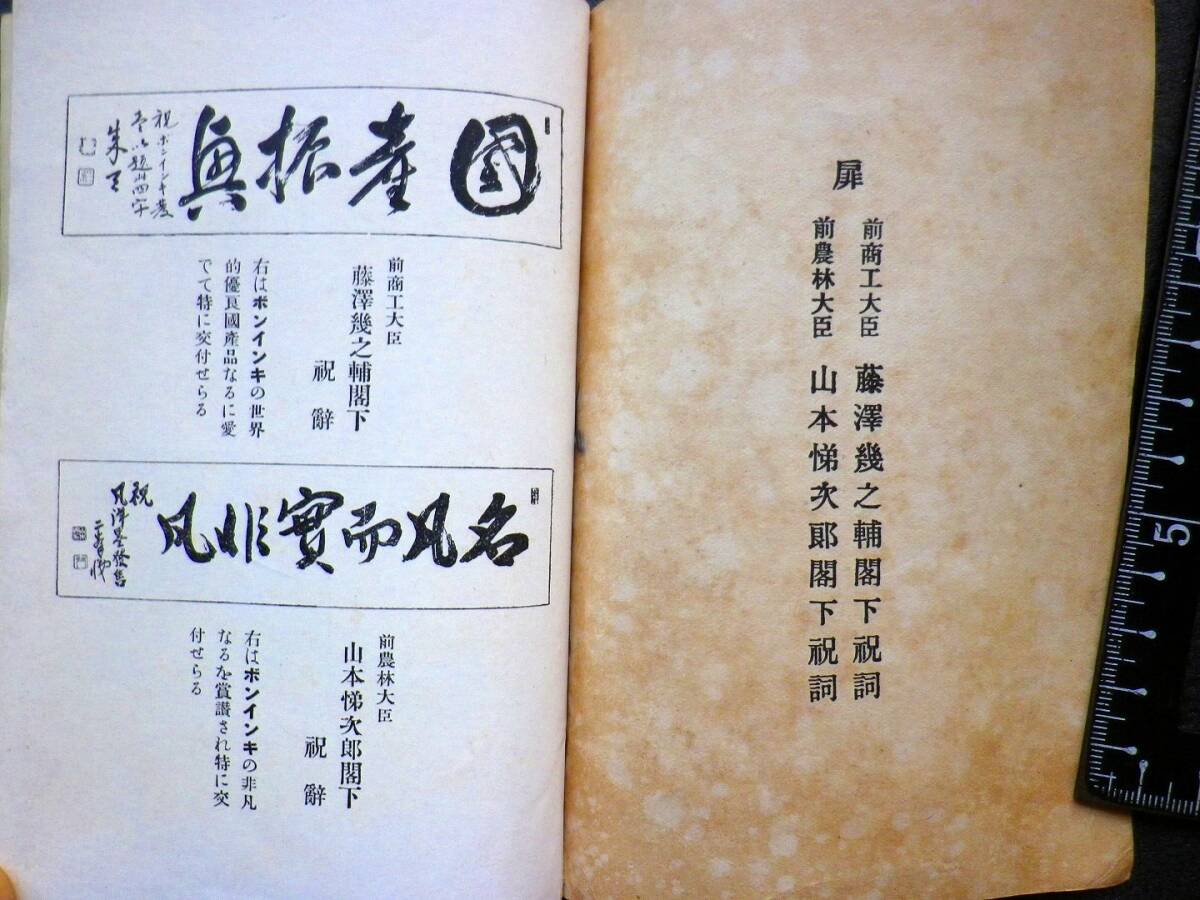 扉
前商工大臣 藤澤幾之輔閣下祝詞
前農林大臣 山本悌次郎閣下祝詞
國産振興
祝ボンインキ發
前商工大臣
藤澤幾之輔閣下
祝辭
右はボンインキの世界
的優良國產品なるに愛
でて特に交付せらる
名凡而實非凡
祝
凡洋墨發售
前農林大臣
山本悌次郎閣下
祝辭
右はボンインキの非凡
なるを賞讃され特に交
付せらる
5